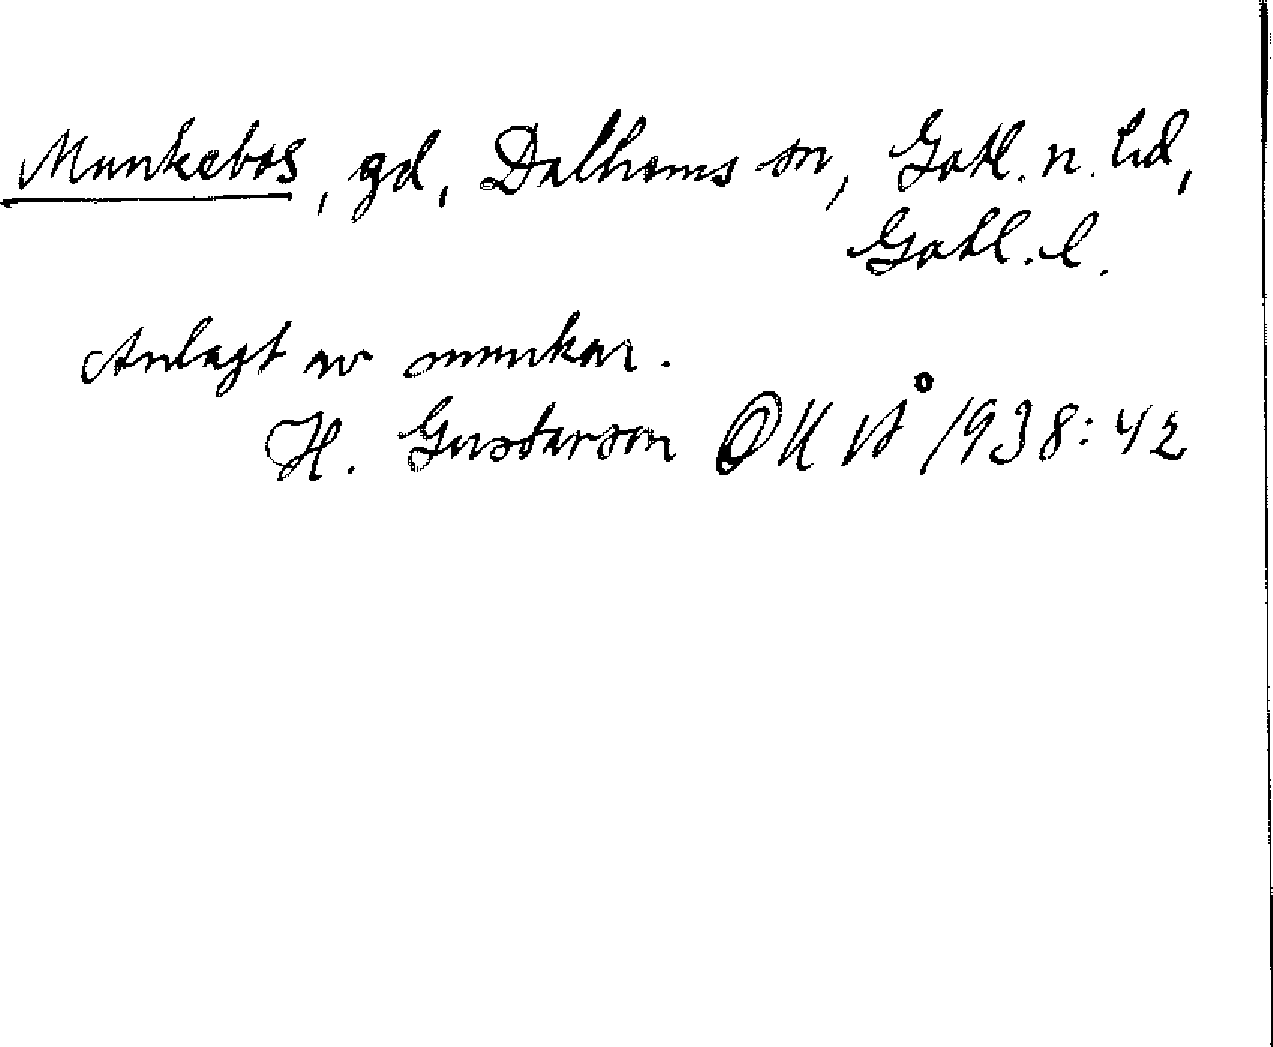 Munkebos, gd, Dalhems sn, Gotl. n. hd,
Gotl. l.
Anlagt av munkar.
H. Gustavson OUÅ 1938:42